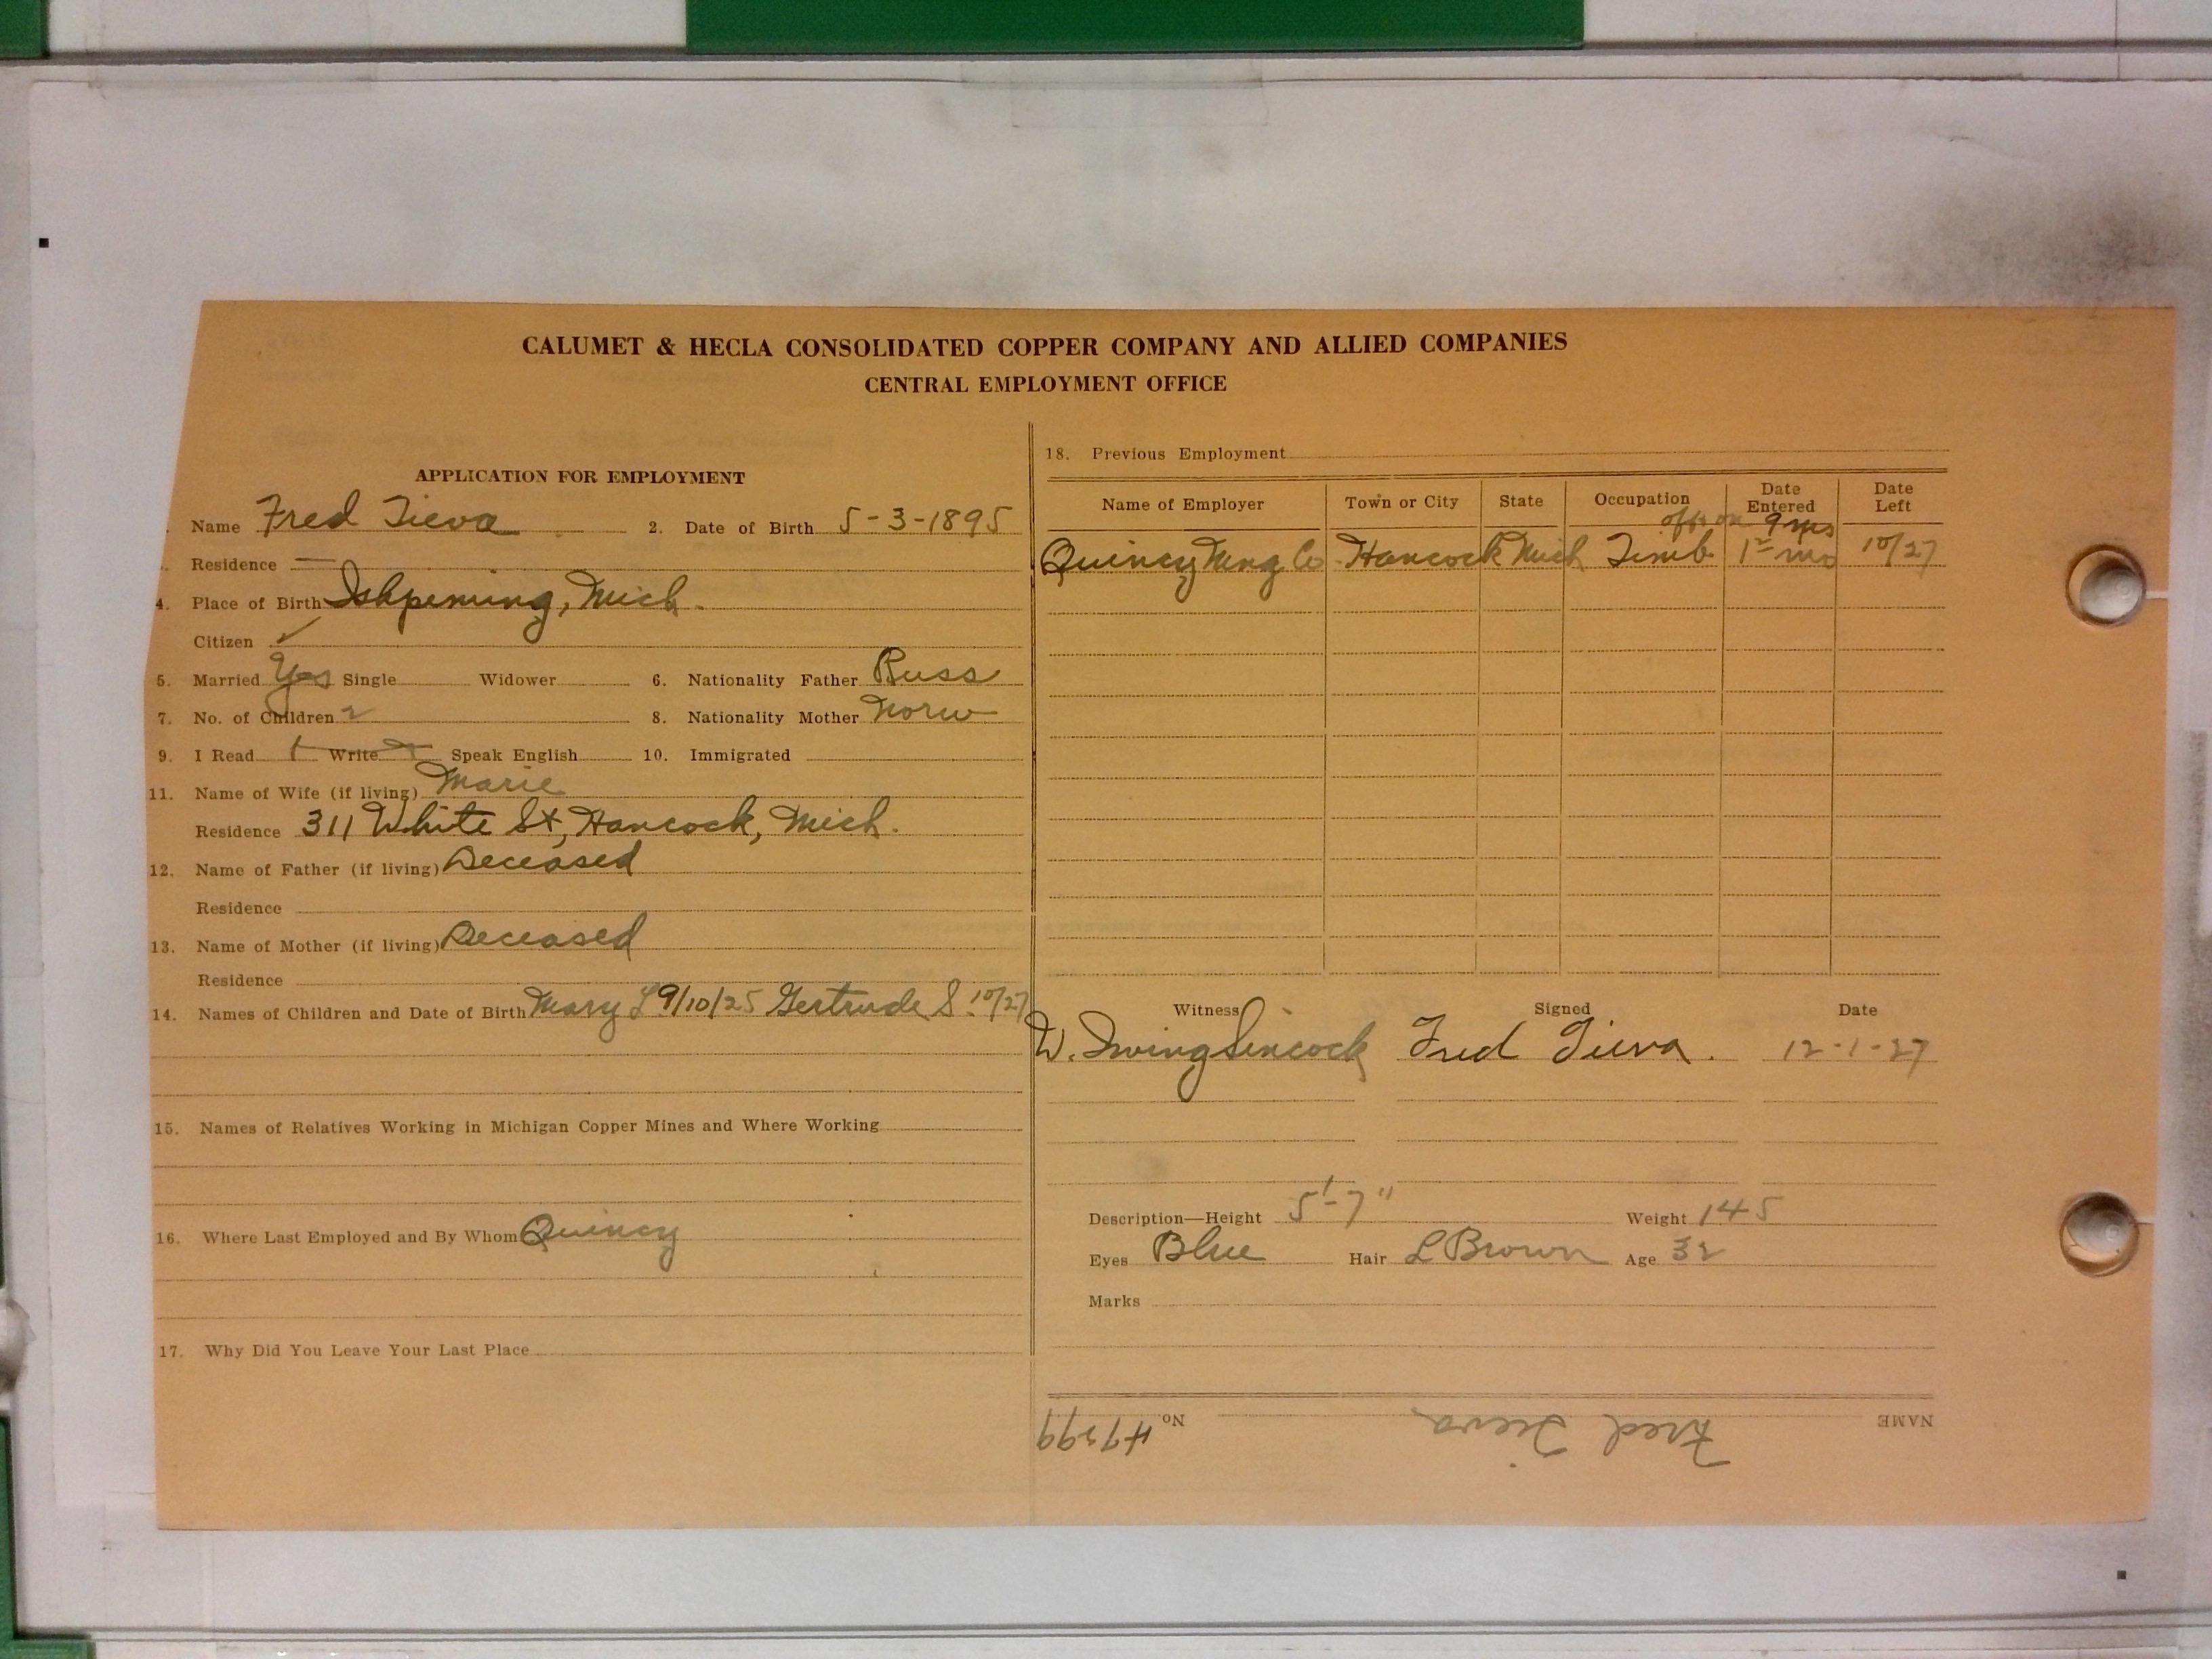 CALUMET & HECLA CONSOLIDATED COPPER COMPANY AND ALLIED COMPANIES
CENTRAL EMPLOYMENT OFFICE
APPLICATION FOR EMPLOYMENT
Name Fred Tieva 2. Date of Birth 5-3-1895
Residence —
4. Place of Birth Ishpeming, Mich.
Citizen ✓
5. Married Yes Single Widower 6. Nationality Father Russ
7. No. of Children 2 8. Nationality Mother Norw
9. I Read Write Speak English 10. Immigrated
11. Name of Wife (if living) Marie
Residence 311 White St, Hancock, Mich.
12. Name of Father (if living) Deceased
Residence
13. Name of Mother (if living) Deceased
Residence
14. Names of Children and Date of Birth Mary L 9/10/25 Gertrude S. 10/27
15. Names of Relatives Working in Michigan Copper Mines and Where Working
16. Where Last Employed and By Whom Quincy
17. Why Did You Leave Your Last Place
18. Previous Employment
Name of Employer Town or City State Occupation Date Entered Date Left
off & on 9 mos
Quincy Mng Co. Hancock Mich Timb 1 mo 10/27
Witness Signed Date
W. Irving Sincock Fred Tieva. 12-1-27
Description—Height 5'-7" Weight 145
Eyes Blue Hair L Brown Age 32
Marks
NAME Fred Tieva No.